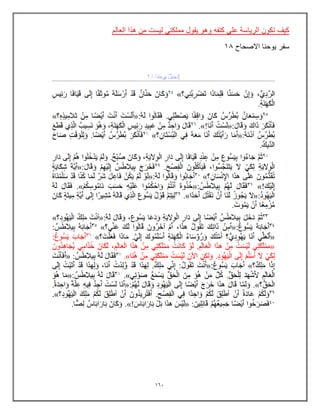 كيف تكون الرياسة على كتفه وهو يقول مملكتي ليست من هذا العالم
سفر يوحنا الاصحاح ١٨
الرَّدِيِّ، وَإِنْ حَسَنًا فَلِمَاذَا تَضْرِبُنِي؟» ٢٤وَكَانَ حَنَّانُ قَدْ أَرْسَلَهُ مُوثَقًا إِلَى قَيَافَا رَئِيسِ
الْكَهَنَةِ.
٢٥وَسِمْعَانُ بُطْرُسُ كَانَ وَاقِفًا يَصْطَلِي. فَقَالُوا لَهُ: «أَلَسْتَ أَنْتَ أَيْضًا مِنْ تَلاَمِيذِهِ؟»
فَأَنْكَرَ ذَاكَ وَقَالَ: «لَسْتُ أَنَا!». ٢٦قَالَ وَاحِدٌ مِنْ عَبِيدِ رَئِيسِ الْكَهَنَةِ، وَهُوَ نَسِيبُ الَّذِي قَطَعَ
بُطْرُسُ أُذْنَهُ: «أَمَا رَأَيْتُكَ أَنَا مَعَهُ فِي الْبُسْتَانِ؟» ٢٧فَأَنْكَرَ بُطْرُسُ أَيْضًا. وَلِلْوَقْتِ صَاحَ
الدِّيكُ.
٢٨ثُمَّ جَاءُوا بِيَسُوعَ مِنْ عِنْدِ قَيَافَا إِلَى دَارِ الْوِلاَيَةِ، وَكَانَ صُبْحٌ. وَلَمْ يَدْخُلُوا هُمْ إِلَى دَارِ
الْوِلاَيَةِ لِكَيْ لاَ يَتَنَجَّسُوا، فَيَأْكُلُونَ الْفِصْحَ. ٢٩فَخَرَجَ بِيلاَطُسُ إِلَيْهِمْ وَقَالَ: «أَيَّةَ شِكَايَةٍ
تُقَدِّمُونَ عَلَى هذَا الإِنْسَانِ؟» ٣٠أَجَابُوا وَقَالُوا لَهُ: «لَوْ لَمْ يَكُنْ فَاعِلَ شَرّ لَمَا كُنَّا قَدْ سَلَّمْنَاهُ
إِلَيْكَ!» ٣١فَقَالَ لَهُمْ بِيلاَطُسُ: «خُذُوهُ أَنْتُمْ وَاحْكُمُوا عَلَيْهِ حَسَبَ نَامُوسِكُمْ». فَقَالَ لَهُ
الْيَهُودُ: «لاَ يَجُوزُ لَنَا أَنْ نَقْتُلَ أَحَدًا». ٣٢لِيَتِمَّ قَوْلُ يَسُوعَ الَّذِي قَالَهُ مُشِيرًا إِلَى أَيَّةِ مِيتَةٍ كَانَ
مُزْمِعًا أَنْ يَمُوتَ.
٣٣ثُمَّ دَخَلَ بِيلاَطُسُ أَيْضًا إِلَى دَارِ الْوِلاَيَةِ وَدَعَا يَسُوعَ، وَقَالَ لَهُ: «أَنْتَ مَلِكُ الْيَهُودِ؟»
٣٤أَجَابَهُ يَسُوعُ: «أَمِنْ ذَاتِكَ تَقُولُ هذَا، أَمْ آخَرُونَ قَالُوا لَكَ عَنِّي؟» ٣٥أَجَابَهُ بِيلاَطُسُ:
«أَلَعَلِّي أَنَا يَهُودِيٌّ؟ أُمَّتُكَ وَرُؤَسَاءُ الْكَهَنَةِ أَسْلَمُوكَ إِلَيَّ. مَاذَا فَعَلْتَ؟» ٣٦أَجَابَ يَسُوعُ:
«مَمْلَكَتِي لَيْسَتْ مِنْ هذَا الْعَالَمِ. لَوْ كَانَتْ مَمْلَكَتِي مِنْ هذَا الْعَالَمِ، لَكَانَ خُدَّامِي يُجَاهِدُونَ
لِكَيْ لاَ أُسَلَّمَ إِلَى الْيَهُودِ. وَلكِنِ الآنَ لَيْسَتْ مَمْلَكَتِي مِنْ هُنَا». ٣٧فَقَالَ لَهُ بِيلاَطُسُ: «أَفَأَنْتَ
إِذًا مَلِكٌ؟» أَجَابَ يَسُوعُ: «أَنْتَ تَقُولُ: إِنِّي مَلِكٌ. لِهذَا قَدْ وُلِدْتُ أَنَا، وَلِهذَا قَدْ أَتَيْتُ إِلَى
الْعَالَمِ لأَشْهَدَ لِلْحَقِّ. كُلُّ مَنْ هُوَ مِنَ الْحَقِّ يَسْمَعُ صَوْتِي». ٣٨قَالَ لَهُ بِيلاَطُسُ: «مَا هُوَ
الْحَقُّ؟». وَلَمَّا قَالَ هذَا خَرَجَ أَيْضًا إِلَى الْيَهُودِ وَقَالَ لَهُمْ: «أَنَا لَسْتُ أَجِدُ فِيهِ عِلَّةً وَاحِدَةً.
٣٩وَلَكُمْ عَادَةٌ أَنْ أُطْلِقَ لَكُمْ وَاحِدًا فِي الْفِصْحِ. أَفَتُرِيدُونَ أَنْ أُطْلِقَ لَكُمْ مَلِكَ الْيَهُودِ؟».
٤٠فَصَرَخُوا أَيْضًا جَمِيعُهُمْ قَائِلِينَ: «لَيْسَ هذَا بَلْ بَارَابَاسَ!». وَكَانَ بَارَابَاسُ لِصًّا.
١٦٠